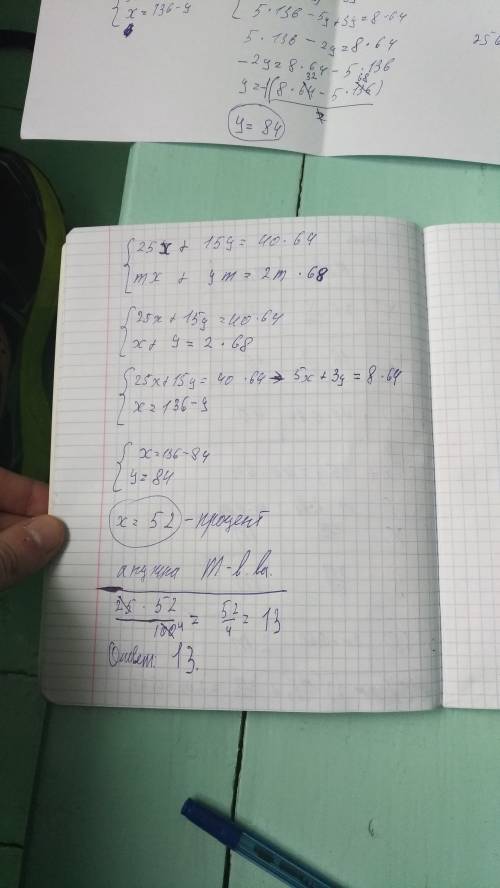 x = 136-y
5·136 - 5y + 3y = 8·64
5·136 - 2y = 8·64
-2y = 8·64 - 5·136
32 68
y = -((8·64 - 5·136)
2
y = 84
256
25x + 15y = 40·64
mx + ym = 2m·68
25x + 15y = 40·64
x + y = 2·68
25x + 15y = 40·64 → 5x + 3y = 8·64
x = 136-y
x = 136-84
y = 84
x = 52 - процент
m-в.ва.
25·52 / 100 4 = 52/4 = 13
Ответ: 13.